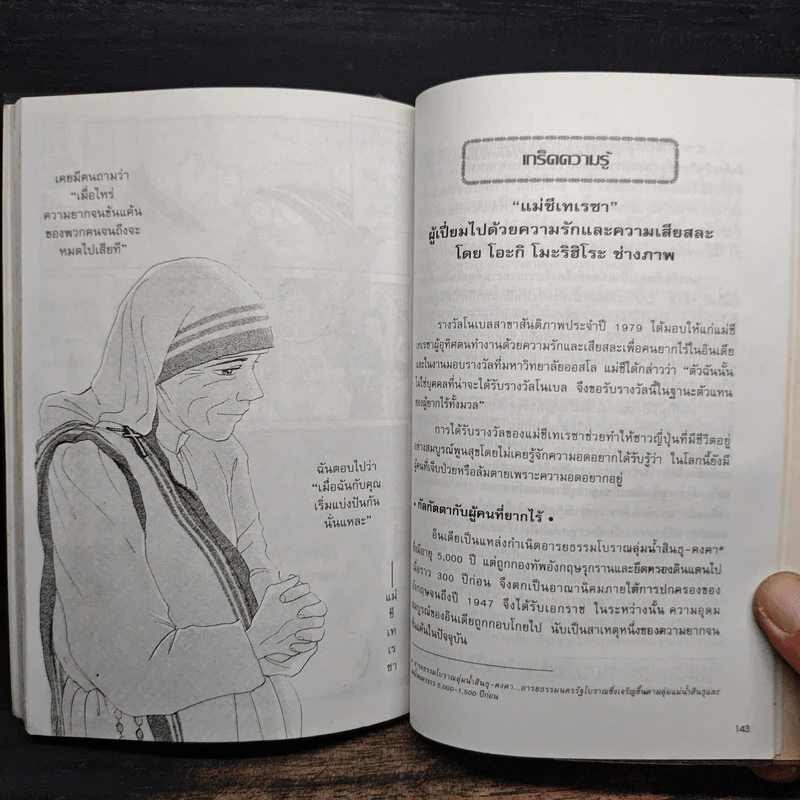 เคยมีคนถามว่า
“เมื่อไหร่
ความยากจนข้นแค้น
ของพวกคนจนถึงจะ
หมดไปเสียที”
ฉันตอบไปว่า
“เมื่อฉันกับคุณ
เริ่มแบ่งปันกัน
นั่นแหละ”
แม่
ชี
เท
เร
ซา
เกร็ดความรู้
“แม่ชีเทเรซา”
ผู้เปี่ยมไปด้วยความรักและความเสียสละ
โดย โอะกิ โมะริฮิโระ ช่างภาพ
รางวัลโนเบลสาขาสันติภาพประจำปี 1979 ได้มอบให้แก่แม่ชี
เทเรซาผู้อุทิศตนทำงานด้วยความรักและเสียสละเพื่อคนยากไร้ในอินเดีย
และในงานมอบรางวัลที่มหาวิทยาลัยออสโล แม่ชีได้กล่าวว่า “ตัวฉันนั้น
ไม่ใช่บุคคลที่น่าจะได้รับรางวัลโนเบล จึงขอรับรางวัลนี้ในฐานะตัวแทน
ของผู้ยากไร้ทั้งมวล”
การได้รับรางวัลของแม่ชีเทเรซาช่วยทำให้ชาวญี่ปุ่นที่มีชีวิตอยู่
อย่างสมบูรณ์พูนสุขโดยไม่เคยรู้จักความอดอยากได้รับรู้ว่า ในโลกนี้ยังมี
ผู้คนที่เจ็บป่วยหรือล้มตายเพราะความอดอยากอยู่
• กัลกัตตากับผู้คนที่ยากไร้ •
อินเดียเป็นแหล่งกำเนิดอารยธรรมโบราณลุ่มน้ำสินธุ-คงคา*
ที่มีอายุ 5,000 ปี แต่ถูกกองทัพอังกฤษรุกรานและยึดครองดินแดนไป
เมื่อราว 300 ปีก่อน จึงตกเป็นอาณานิคมภายใต้การปกครองของ
อังกฤษจนถึงปี 1947 จึงได้รับเอกราช ในระหว่างนั้น ความอุดม
สมบูรณ์ของอินเดียถูกกอบโกยไป นับเป็นสาเหตุหนึ่งของความยากจน
ข้นแค้นในปัจจุบัน
* อารยธรรมโบราณลุ่มน้ำสินธุ-คงคา...อารยธรรมนครรัฐโบราณซึ่งเจริญขึ้นตามลุ่มแม่น้ำสินธุและ
5,000-1,500 ปีก่อน
143